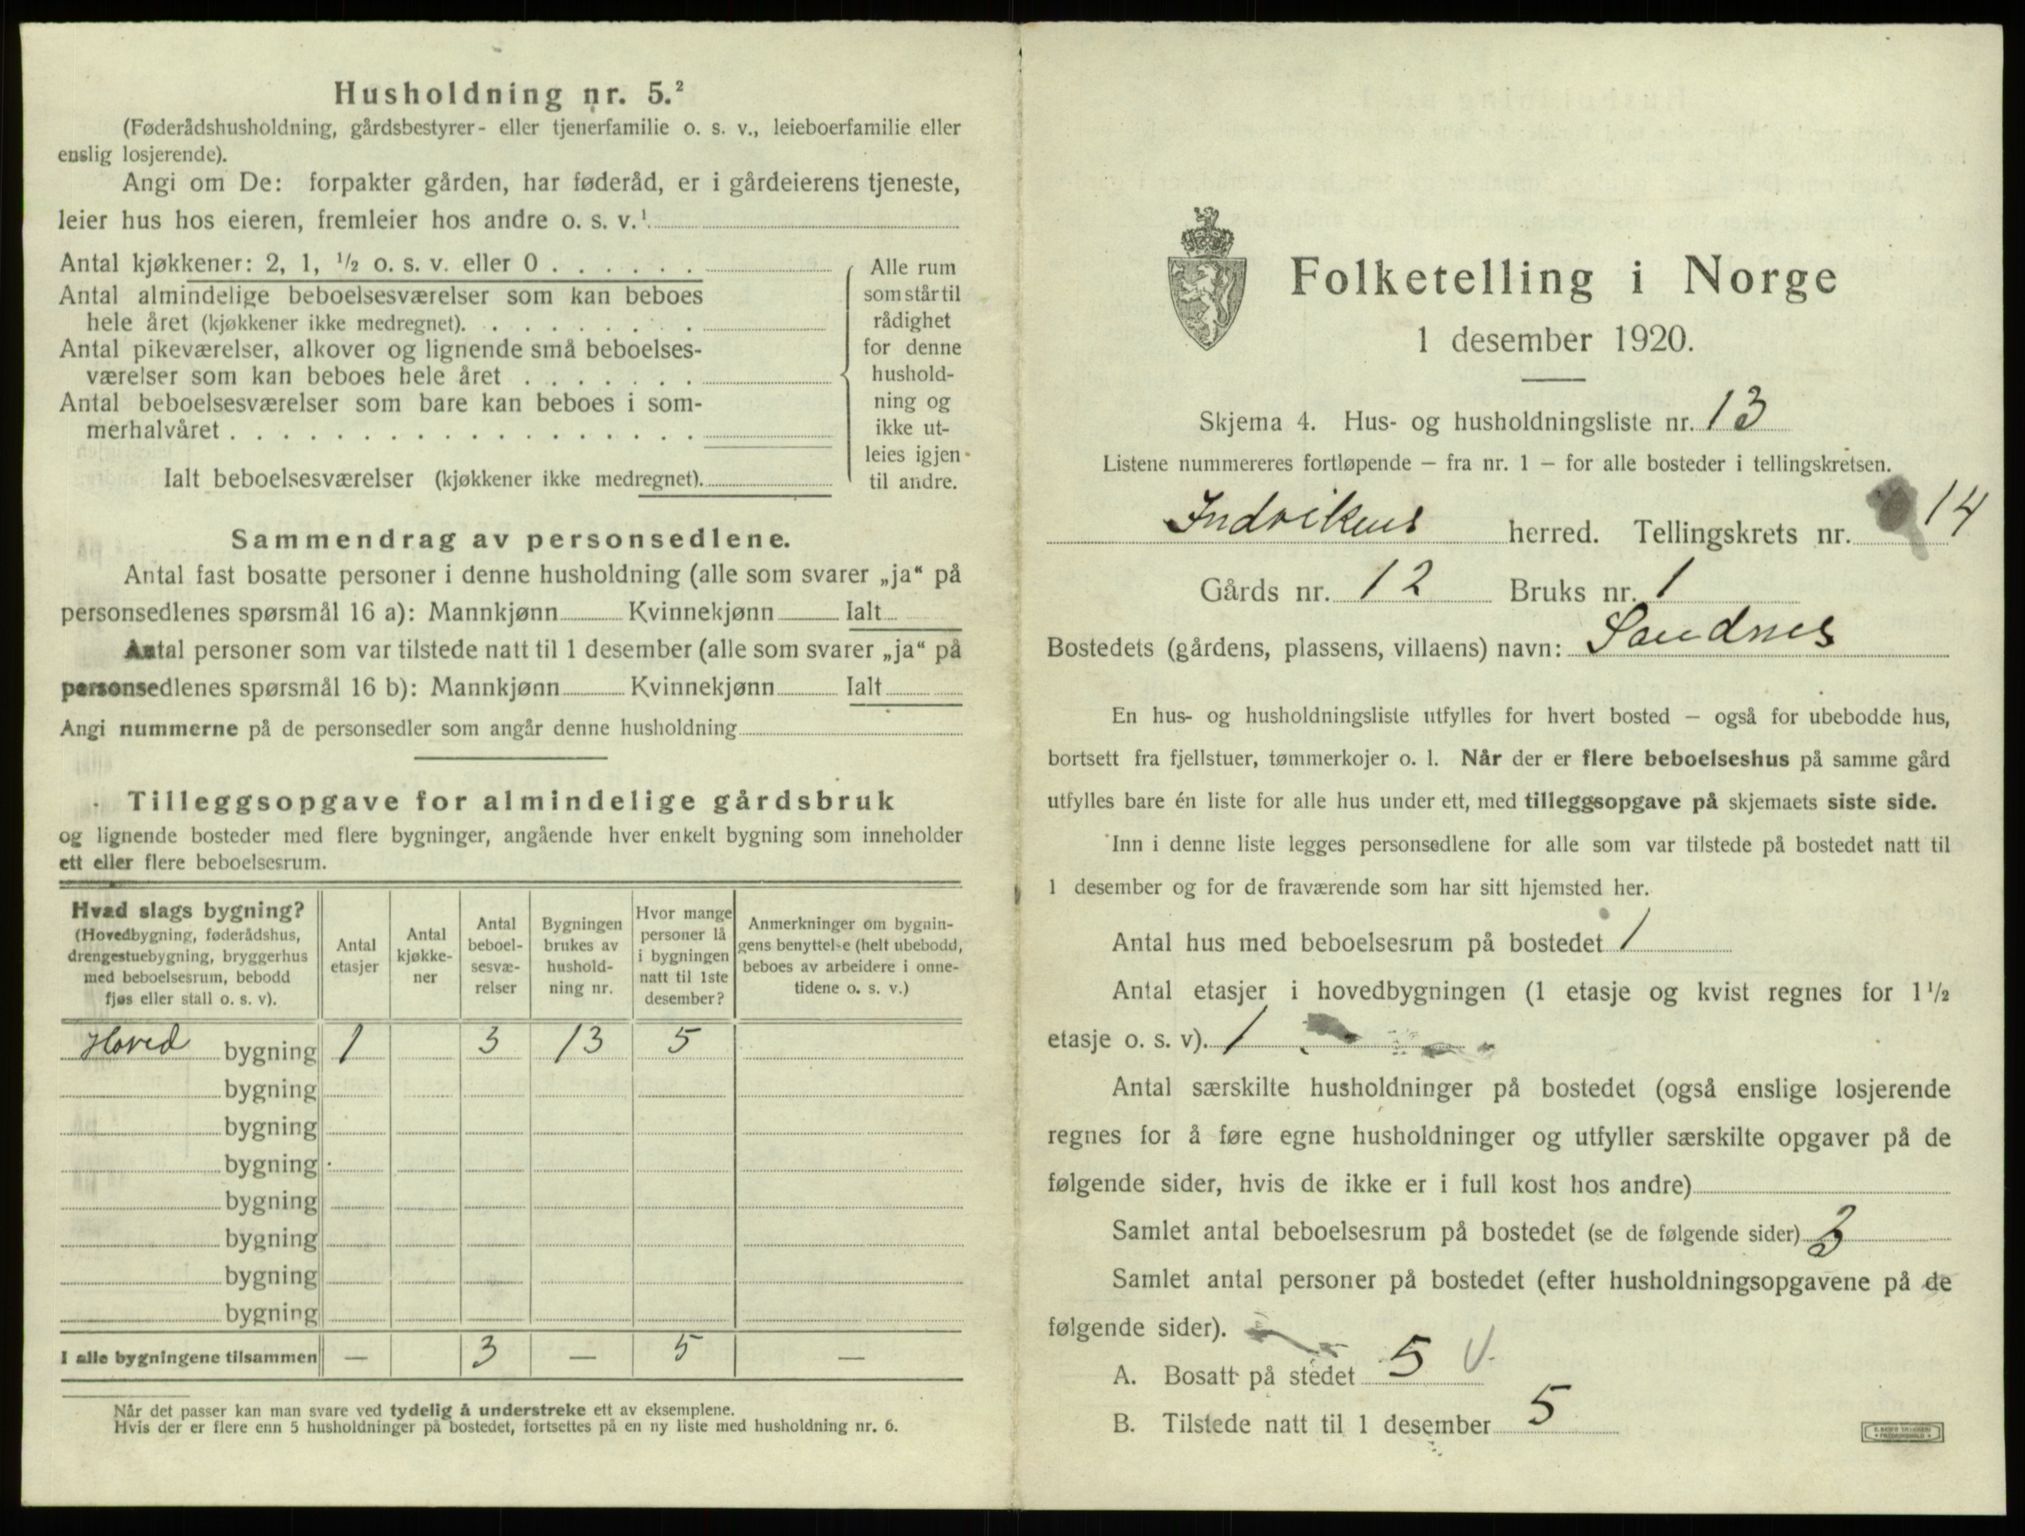 Husholdning nr. 5.²
(Føderådshusholdning, gårdsbestyrer- eller tjenerfamilie o. s. v., leieboerfamilie eller
enslig losjerende).
Angi om De: forpakter gården, har føderåd, er i gårdeierens tjeneste,
leier hus hos eieren, fremleier hos andre o. s. v.¹
Antal kjøkkener: 2, 1, ½ o. s. v. eller 0
Antal almindelige beboelsesværelser som kan beboes
hele året (kjøkkener ikke medregnet).
Antal pikeværelser, alkover og lignende små beboelses-
værelser som kan beboes hele året
Antal beboelsesværelser som bare kan beboes i som-
merhalvåret
Ialt beboelsesværelser (kjøkkener ikke medregnet).
Alle rum
som står til
rådighet
for denne
hushold-
ning og
ikke ut-
leies igjen
til andre.
Sammendrag av personsedlene.
Antal fast bosatte personer i denne husholdning (alle som svarer „ja“ på
personsedlenes spørsmål 16 a): Mannkjønn Kvinnekjønn Ialt
Antal personer som var tilstede natt til 1 desember (alle som svarer „ja“ på
personsedlenes spørsmål 16 b): Mannkjønn Kvinnekjønn Ialt
Angi nummerne på de personsedler som angår denne husholdning
Tilleggsopgave for almindelige gårdsbruk
og lignende bosteder med flere bygninger, angående hver enkelt bygning som inneholder
ett eller flere beboelsesrum.
Hvad slags bygning?
(Hovedbygning, føderådshus,
drengestuebygning, bryggerhus
med beboelsesrum, bebodd
fjøs eller stall o. s. v).
Antal
etasjer
Antal
kjøkke-
ner
Antal
beboel-
sesvæ-
relser
Bygningen
brukes av
hushold-
ning nr.
Hvor mange
personer lå
i bygningen
natt til 1ste
desember?
Anmerkninger om bygnin-
gens benyttelse (helt ubebodd,
beboes av arbeidere i onne-
tidene o. s. v.)
Hoved bygning 1 3 13 5
bygning
bygning
bygning
bygning
bygning
bygning
bygning
I alle bygningene tilsammen — 3 — 5 —
Når det passer kan man svare ved tydelig å understreke ett av eksemplene.
Hvis der er flere enn 5 husholdninger på bostedet, fortsettes på en ny liste med husholdning nr. 6.
Folketelling i Norge
1 desember 1920.
Skjema 4. Hus- og husholdningsliste nr. 13
Listene nummereres fortløpende – fra nr. 1 – for alle bosteder i tellingskretsen.
Indvikens herred. Tellingskrets nr. 14
Gårds nr. 12 Bruks nr. 1
Bostedets (gårdens, plassens, villaens) navn: Sandnes
En hus- og husholdningsliste utfylles for hvert bosted – også for ubebodde hus,
bortsett fra fjellstuer, tømmerkojer o. l. Når der er flere beboelseshus på samme gård
utfylles bare én liste for alle hus under ett, med tilleggsopgave på skjemaets siste side.
Inn i denne liste legges personsedlene for alle som var tilstede på bostedet natt til
1 desember og for de fraværende som har sitt hjemsted her.
Antal hus med beboelsesrum på bostedet 1
Antal etasjer i hovedbygningen (1 etasje og kvist regnes for 1½
etasje o. s. v). 1
Antal særskilte husholdninger på bostedet (også enslige losjerende
regnes for å føre egne husholdninger og utfyller særskilte opgaver på de
følgende sider, hvis de ikke er i full kost hos andre)
Samlet antal beboelsesrum på bostedet (se de følgende sider) 3
Samlet antal personer på bostedet (efter husholdningsopgavene på de
følgende sider).
A. Bosatt på stedet 5 V.
B. Tilstede natt til 1 desember 5